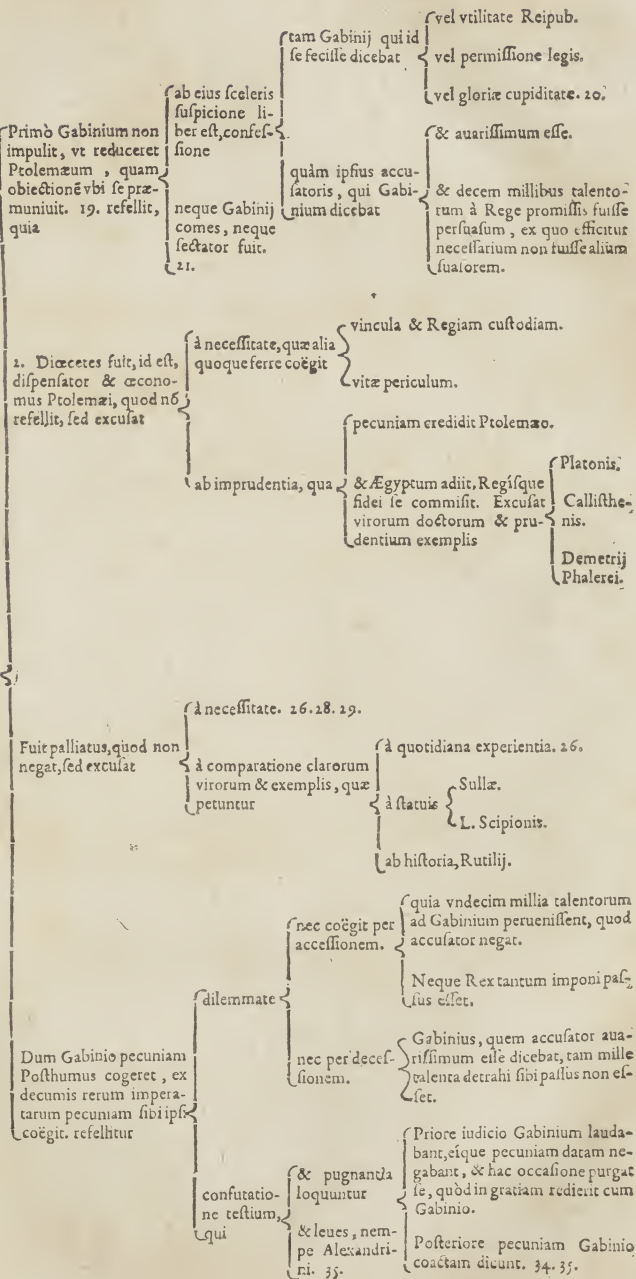 Primò Gabinium non
impulit, vt reduceret
Ptolemæum, quam
obiectionē vbi se præ-
muniuit. 19. refellit,
quia
ab eius sceleris
suspicione li-
ber est, confes-
sione
tam Gabinij qui id
se fecisse dicebat
vel vtilitate Reipub.
vel permissione legis.
vel gloriæ cupiditate. 20.
quàm ipsius accu-
satoris, qui Gabi-
nium dicebat
& auarissimum esse.
& decem millibus talento-
rum à Rege promissis fuisse
persuasum, ex quo efficitur
necessarium non fuisse alium
suasorem.
neque Gabinij
comes, neque
sectator fuit.
21.
2. Diœcetes fuit, id est,
dispensator & œcono-
mus Ptolemæi, quod nō
refellit, sed excusat
à necessitate, quæ alia
quoque ferre coëgit
vincula & Regiam custodiam.
vitæ periculum.
ab imprudentia, qua
pecuniam credidit Ptolemæo.
& Ægyptum adiit, Regisque
fidei se commisit. Excusat
virorum doctorum & pru-
dentium exemplis
Platonis.
Callisthe-
nis.
Demetrij
Phalerei.
Fuit palliatus, quod non
negat, sed excusat
à necessitate. 26. 28. 29.
à comparatione clarorum
virorum & exemplis, quæ
petuntur
à quotidiana experientia. 26.
à statuis
Sullæ.
L. Scipionis.
ab historia, Rutilij.
Dum Gabinio pecuniam
Posthumus cogeret, ex
decumis rerum impera-
tarum pecuniam sibi ipsi
coëgit. refellitur
dilemmate
nec coëgit per
accessionem.
quia vndecim millia talentorum
ad Gabinium peruenissent, quod
accusator negat.
Neque Rex tantum imponi pas-
sus esset.
nec per deces-
sionem.
Gabinius, quem accusator aua-
rissimum esse dicebat, tam mille
talenta detrahi sibi passus non es-
set.
confutatio-
ne testium,
qui
& pugnantia
loquuntur
Priore iudicio Gabinium lauda-
bant, eique pecuniam datam ne-
gabant, & hac occasione purgat
se, quòd in gratiam redierit cum
Gabinio.
Posteriore pecuniam Gabinio
coactam dicunt. 34. 35.
& leues, nem-
pe Alexandri-
ni. 35.